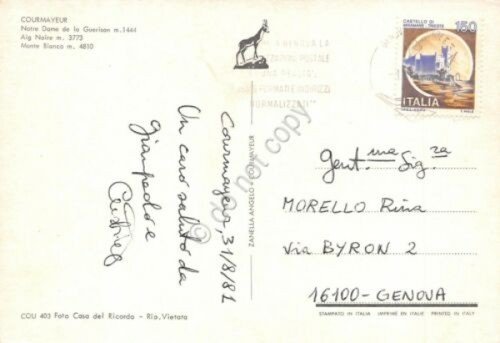 COURMAYEUR
Notre Dame de la Guerison m.1444
Aig Noire m. 3773
Monte Bianco m. 4810
A GENOVA LA
POSTALE
INDIRIZZI
NORMALIZZATI"
CASTELLO DI
MIRAMARE - TRIESTE
150
ITALIA
Courmayeur, 31/8/82
Un caro saluto da
Gianpadore
ZANELLA ANGELO - COURMAYEUR
do not copy
Gent.ma Sig.za
MORELLO Rina
Via BYRON 2
16100-GENOVA
COU 403 Foto Casa del Ricordo - Rip. Vietata
STAMPATO IN ITALIA IMPRIMÉ EN ITALIE PRINTED IN ITALY